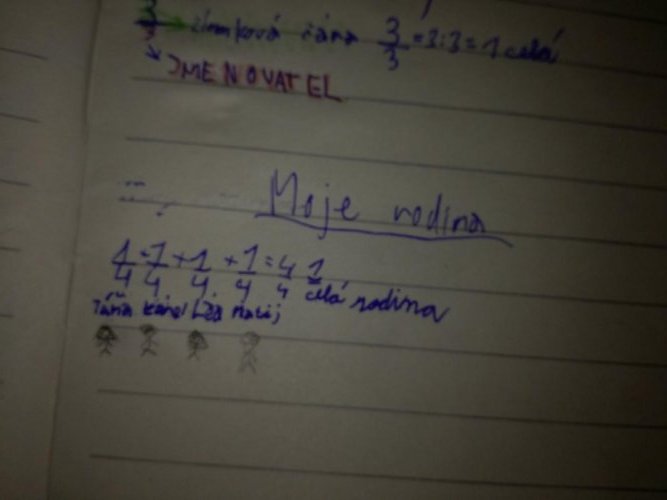 3/3 → zlomková čára 3/3 = 3:3 = 1 celá
↘ JMENOVATEL
Moje rodina
1/4 + 1/4 + 1/4 + 1/4 = 4/4 1 celá rodina
Táňa Karel Lída Matěj